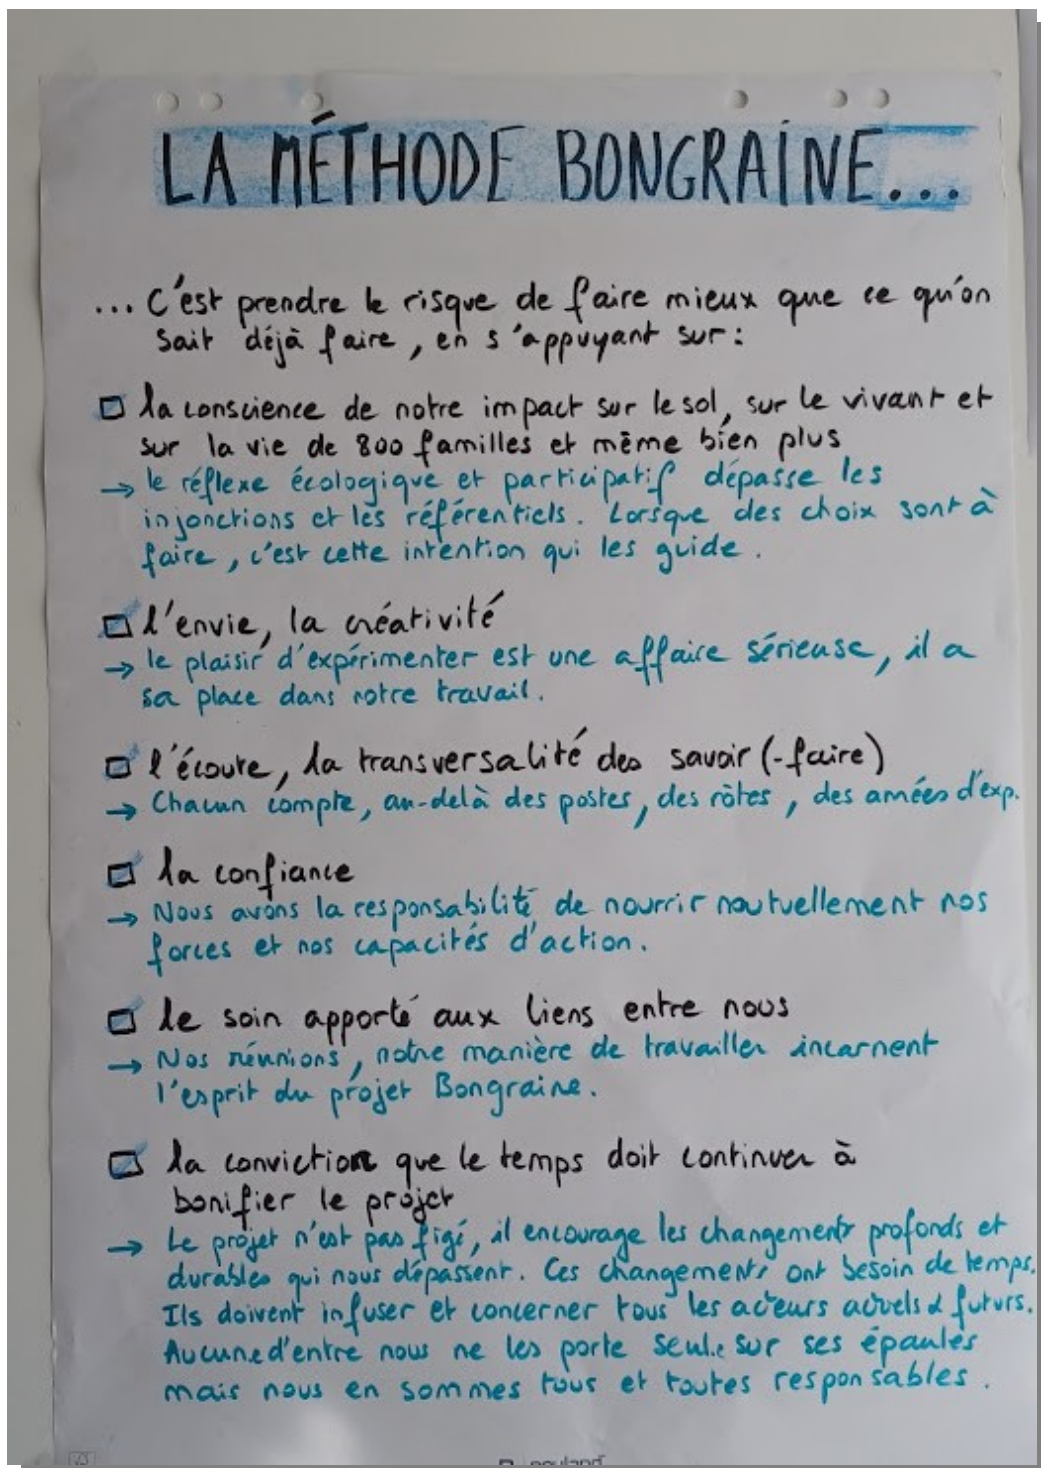 LA MÉTHODE BONGRAINE...
... C'est prendre le risque de faire mieux que ce qu'on
sait déjà faire, en s'appuyant sur :
la conscience de notre impact sur le sol, sur le vivant et
sur la vie de 800 familles et même bien plus
→ le réflexe écologique et participatif dépasse les
injonctions et les référentiels. Lorsque des choix sont à
faire, c'est cette intention qui les guide.
l'envie, la créativité
→ le plaisir d'expérimenter est une affaire sérieuse, il a
sa place dans notre travail.
l'écoute, la transversalité des savoir (-faire)
→ Chacun compte, au-delà des postes, des rôles, des années d'exp.
la confiance
→ Nous avons la responsabilité de nourrir mutuellement nos
forces et nos capacités d'action.
le soin apporté aux liens entre nous
→ Nos réunions, notre manière de travailler incarnent
l'esprit du projet Bongraine.
la conviction que le temps doit continuer à
bonifier le projet
→ Le projet n'est pas figé, il encourage les changements profonds et
durables qui nous dépassent. Ces changements ont besoin de temps.
Ils doivent infuser et concerner tous les acteurs actuels & futurs.
Aucun.e d'entre nous ne les porte seul.e sur ses épaules
mais nous en sommes tous et toutes responsables.